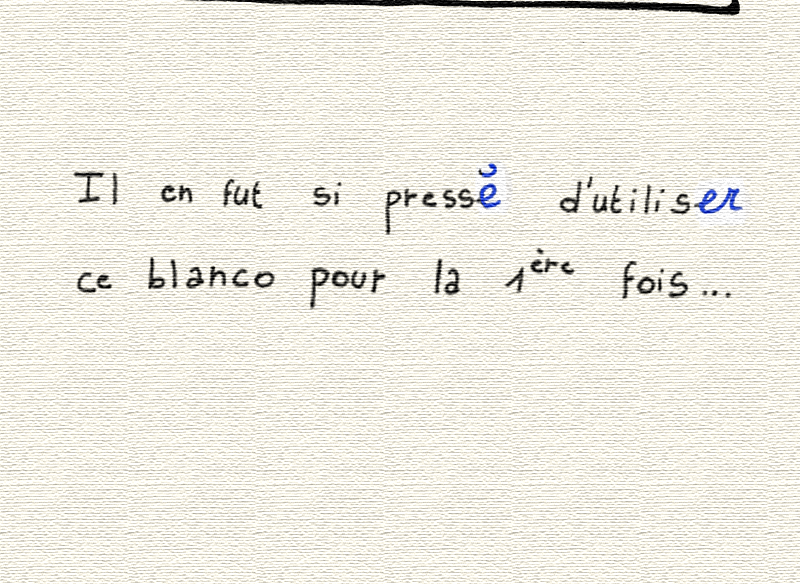 Il en fut si pressĕ d'utiliser
ce blanco pour la 1ère fois...